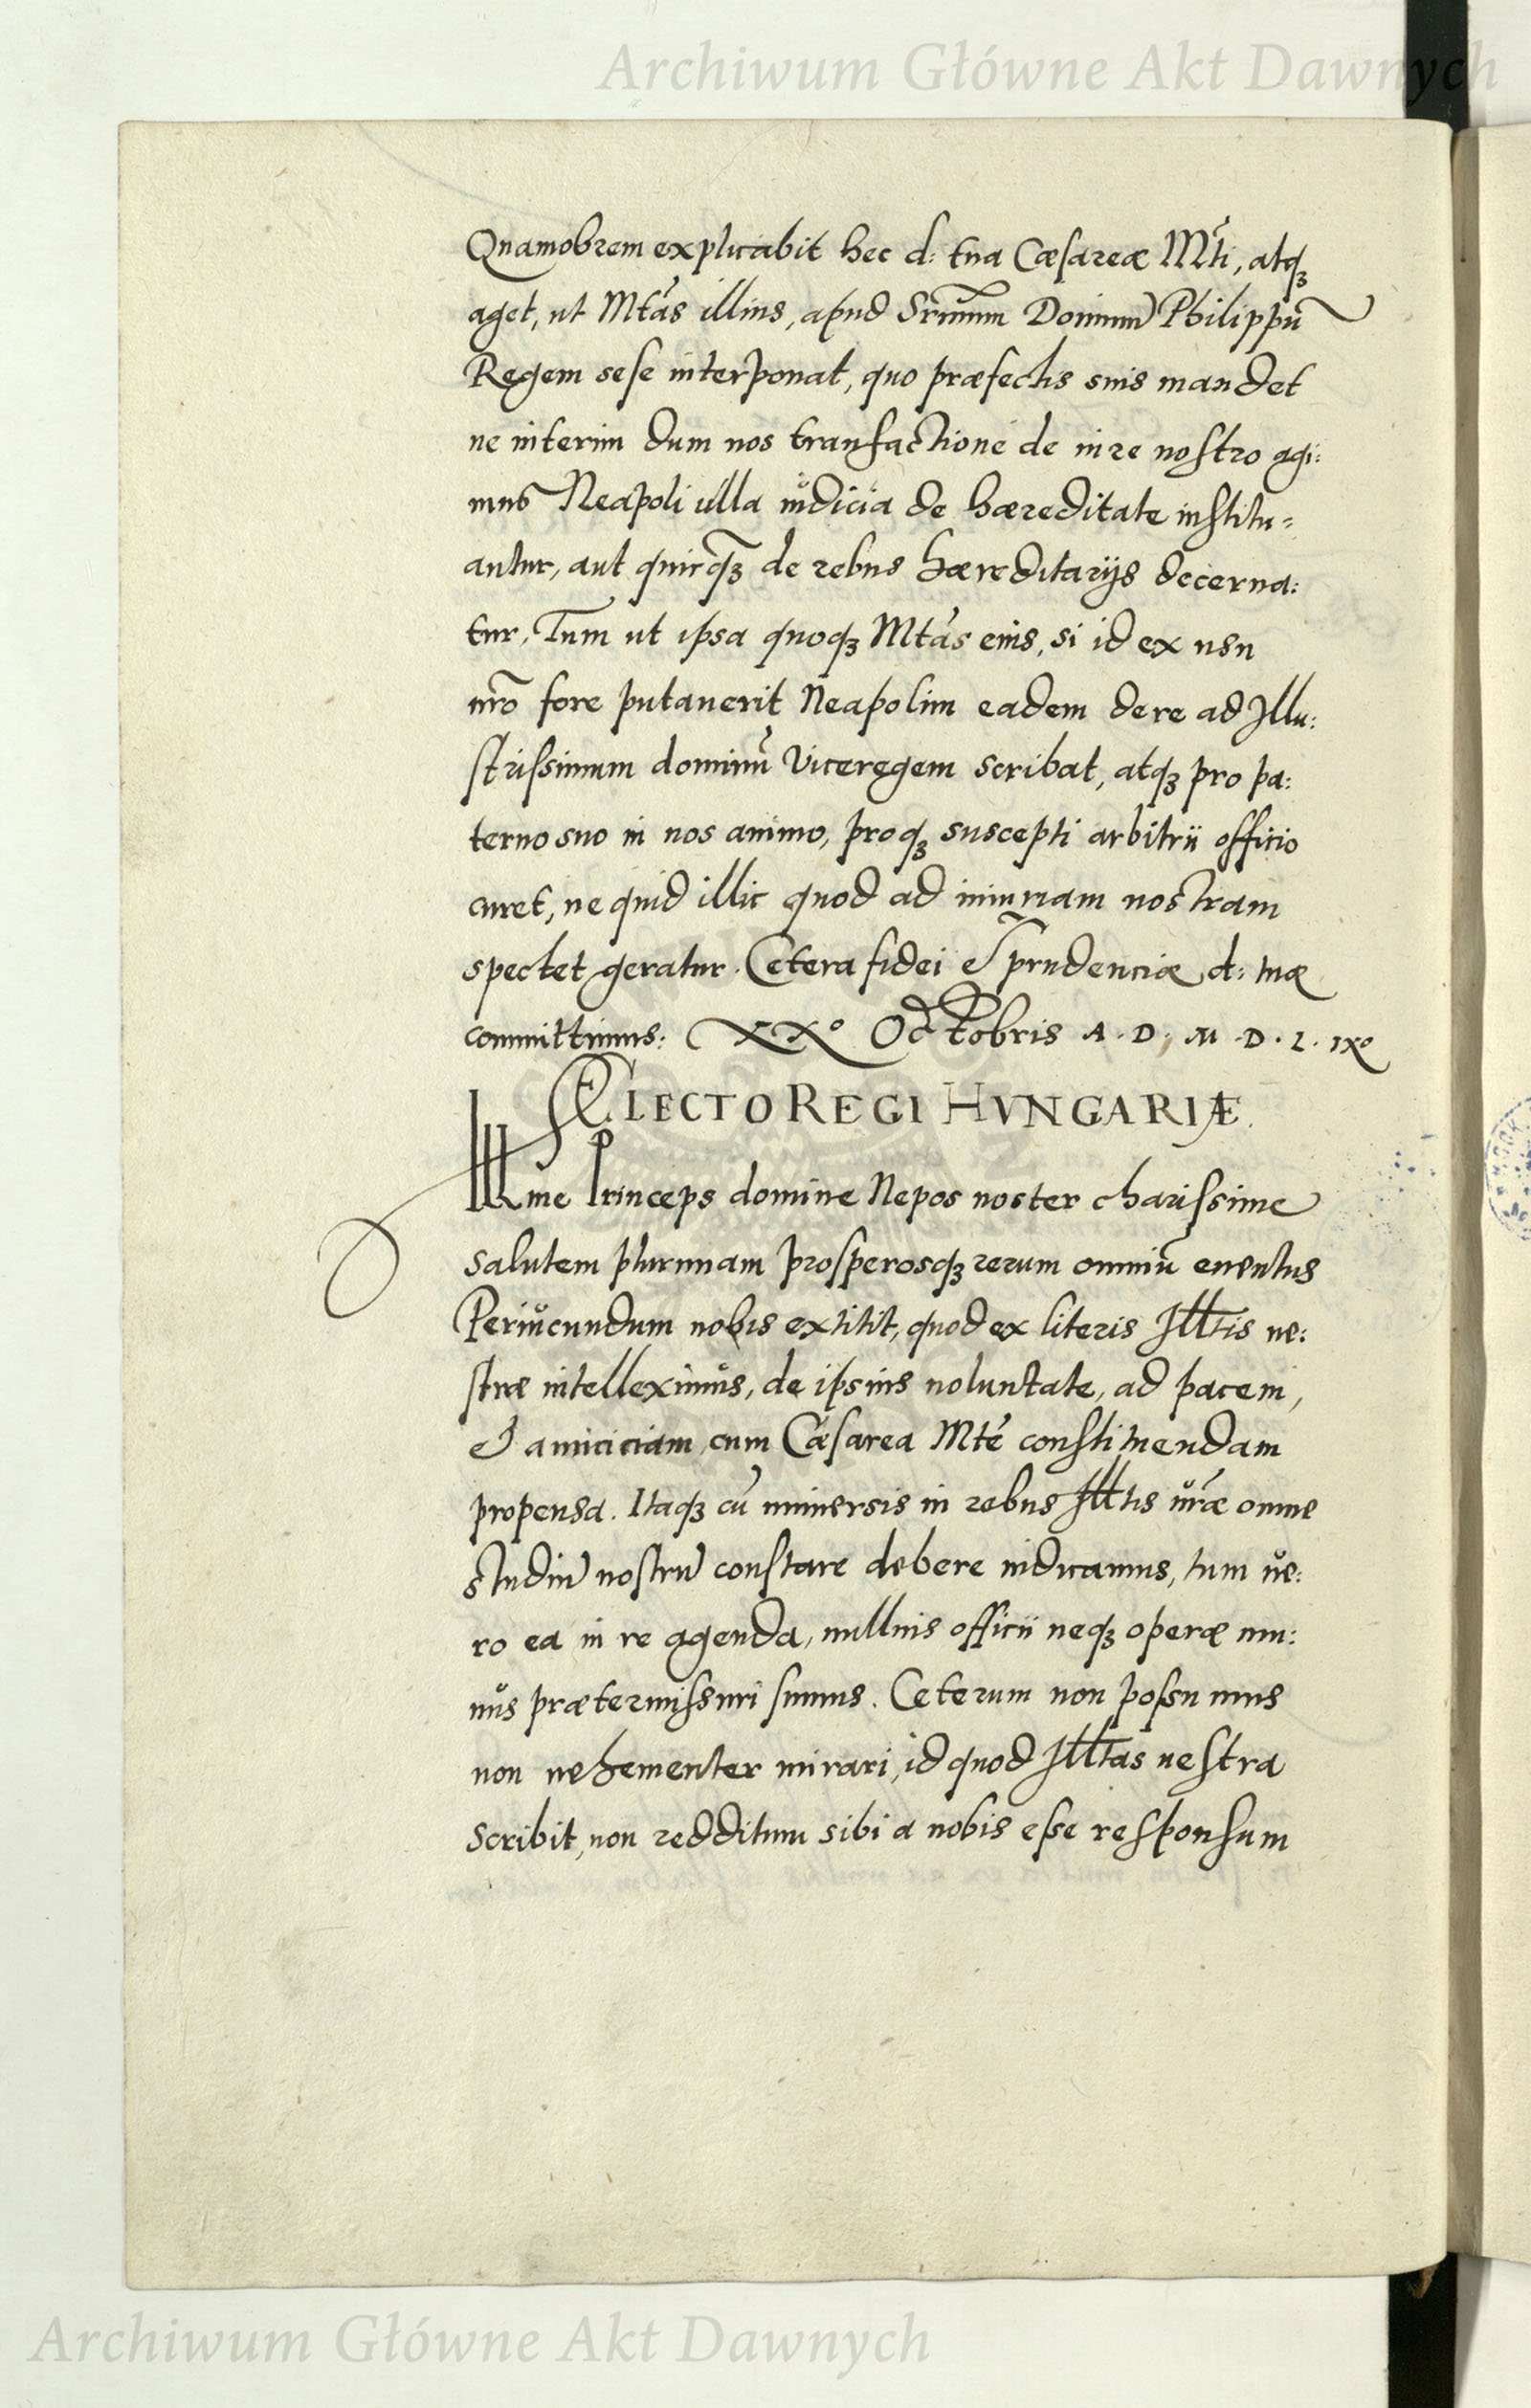 Archiwum Główne Akt Dawnych
Quamobrem explicabit hec d: tua Cæsareæ Mti, atqꝫ
aget, ut Mtas illius, apud Srmum Dominum Philippū
Regem sese interponat, quo præfectis suis mandet
ne interim dum nos transactione de iure nostro agi:
mus Neapoli ulla iudicia de hæreditate institu=
antur, aut quicqꝫ de rebus hæreditarijs decerna:
tur, Tum ut ipsa quoqꝫ Mtas eius, si id ex usu
nro fore putauerit Neapolim eadem de re ad Illu:
strissimum dominū Viceregem scribat, atqꝫ pro pa:
terno suo in nos animo, proqꝫ suscepti arbitrii officio
curet, ne quid illic quod ad iniuriam nostram
spectet geratur. Cetera fidei et prudenciæ d: tuæ
committimus: XXº Octobris A. D. M. D. L. IXº
ELECTO REGI HVNGARIÆ.
Illme Princeps domine Nepos noster charissime
salutem plurimam prosperosqꝫ rerum omniū euentus
Periucundum nobis extitit, quod ex literis Illtis ue:
stræ intelleximus, de ipsius uoluntate, ad pacem,
et amiciciam cum Cæsarea Mte constituendam
propensa. Itaqꝫ cū uniuersis in rebus Illtis uræ omne
studiū nostrū constare debere iudicamus, tum ue:
ro ea in re agenda, nullius officii neqꝫ operæ mu:
nus prætermissuri sumus. Ceterum non possumus
non uehementer mirari, id quod Illtas uestra
scribit, non redditum sibi a nobis esse responsum
Archiwum Główne Akt Dawnych